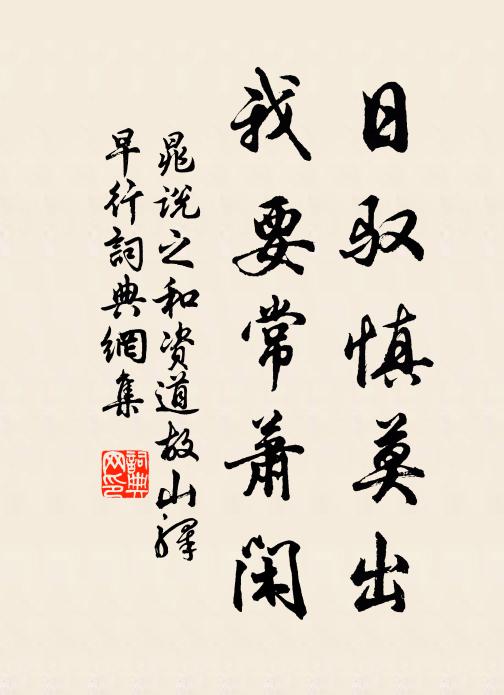 日驭慎莫出
我要常蕭闲
晁説之和资道故山驛
早行詞典網集
詞典网印